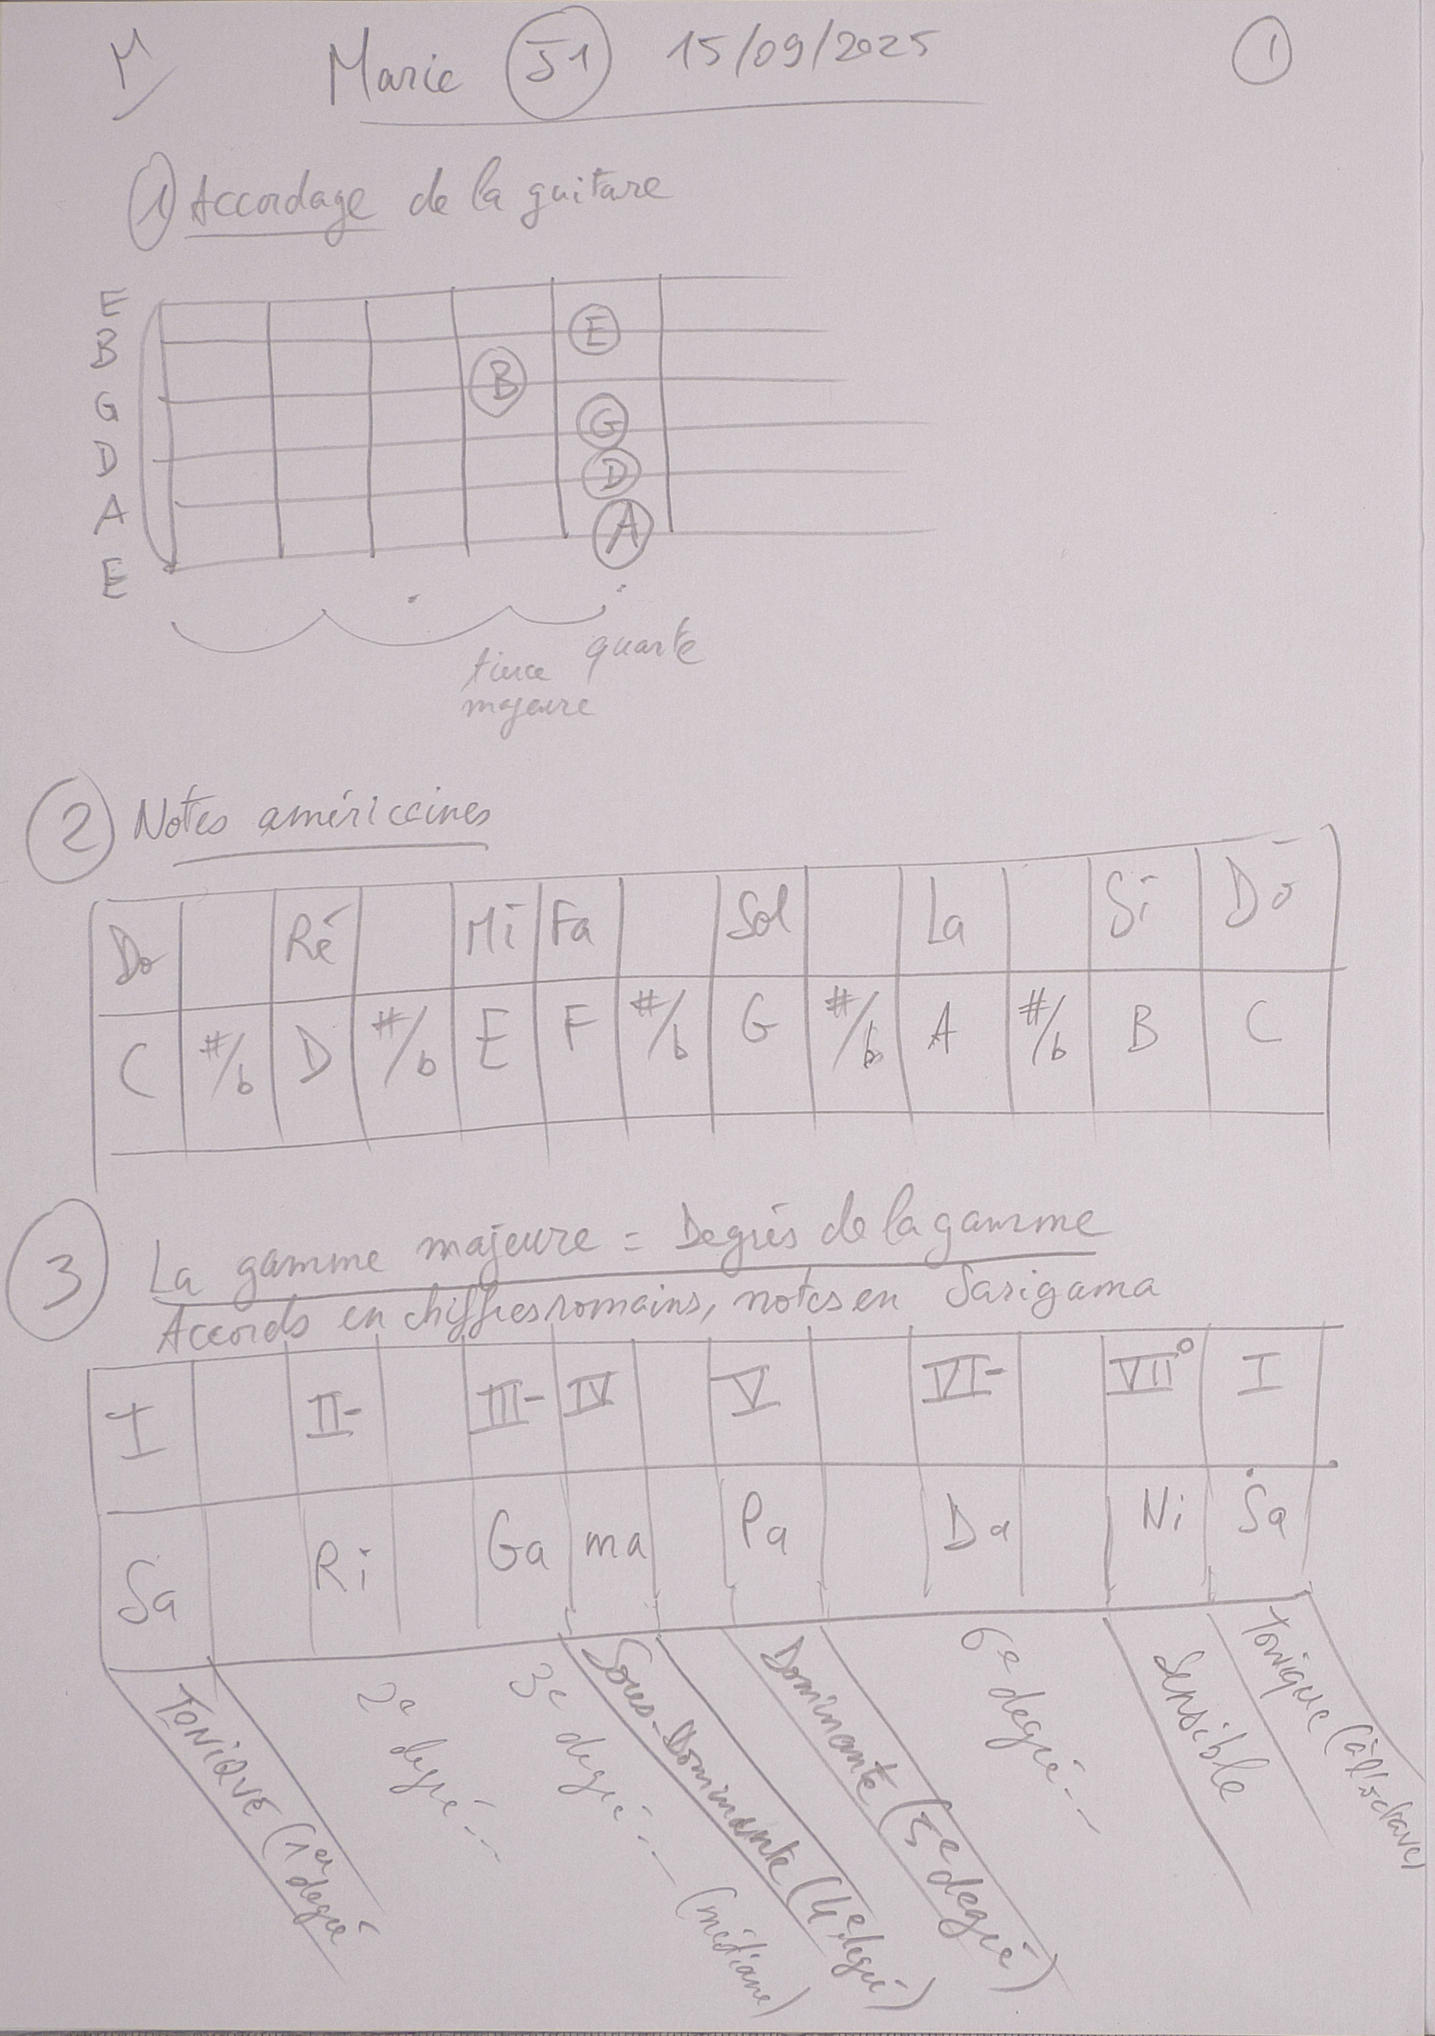 M Marie J1 15/09/2025 1
1 Accordage de la guitare
E
B
G
D
A
E
E
B
G
D
A
tierce quarte
majeure
2 Notes américaines
Do Ré Mi Fa Sol La Si Do
C #/b D #/b E F #/b G #/b A #/b B C
3 La gamme majeure = Degrés de la gamme
Accords en chiffres romains, notes en Sarigama
I II- III- IV V VI- VII° I
Sa Ri Ga ma Pa Da Ni Sa
TONIQUE (1er degré
2e degré...
3e degré... (médiane)
Sous-Dominante (4e degré)
Dominante (5e degré)
6e degré...
Sensible
Tonique (à l'octave)